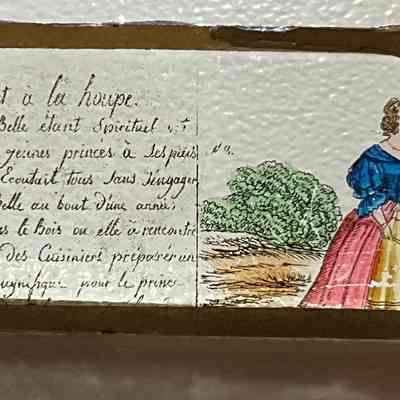 t à la houpe.
Belle étant Spirituel
jeunes princes à ses pieds
Ecoutait tous sans s'engager
elle au bout d'une année;
s le Bois ou elle à rencontré
des Cuisiniers préparer un
magnifique pour le prince